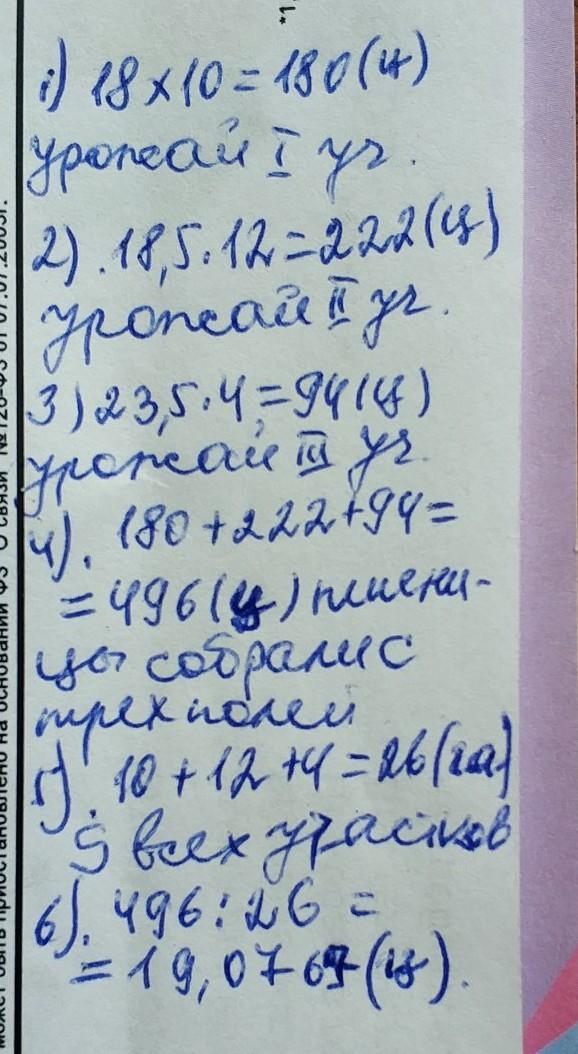 *1
1) 18 х 10 = 180 (ц)
урожай I уч.
2). 18,5 · 12 = 222 (ц)
урожай II уч.
3) 23,5 · 4 = 94 (ц)
урожай III уч.
4). 180 + 222 + 94 =
= 496 (ц) пшени-
цы собрали с
трех полей
5). 10 + 12 + 4 = 26 (га)
S всех участков
6). 496 : 26 =
= 19,0767 (ц).
может быть приостановлено на основании ФЗ "О связи" №126-ФЗ от 07.07.2003г.